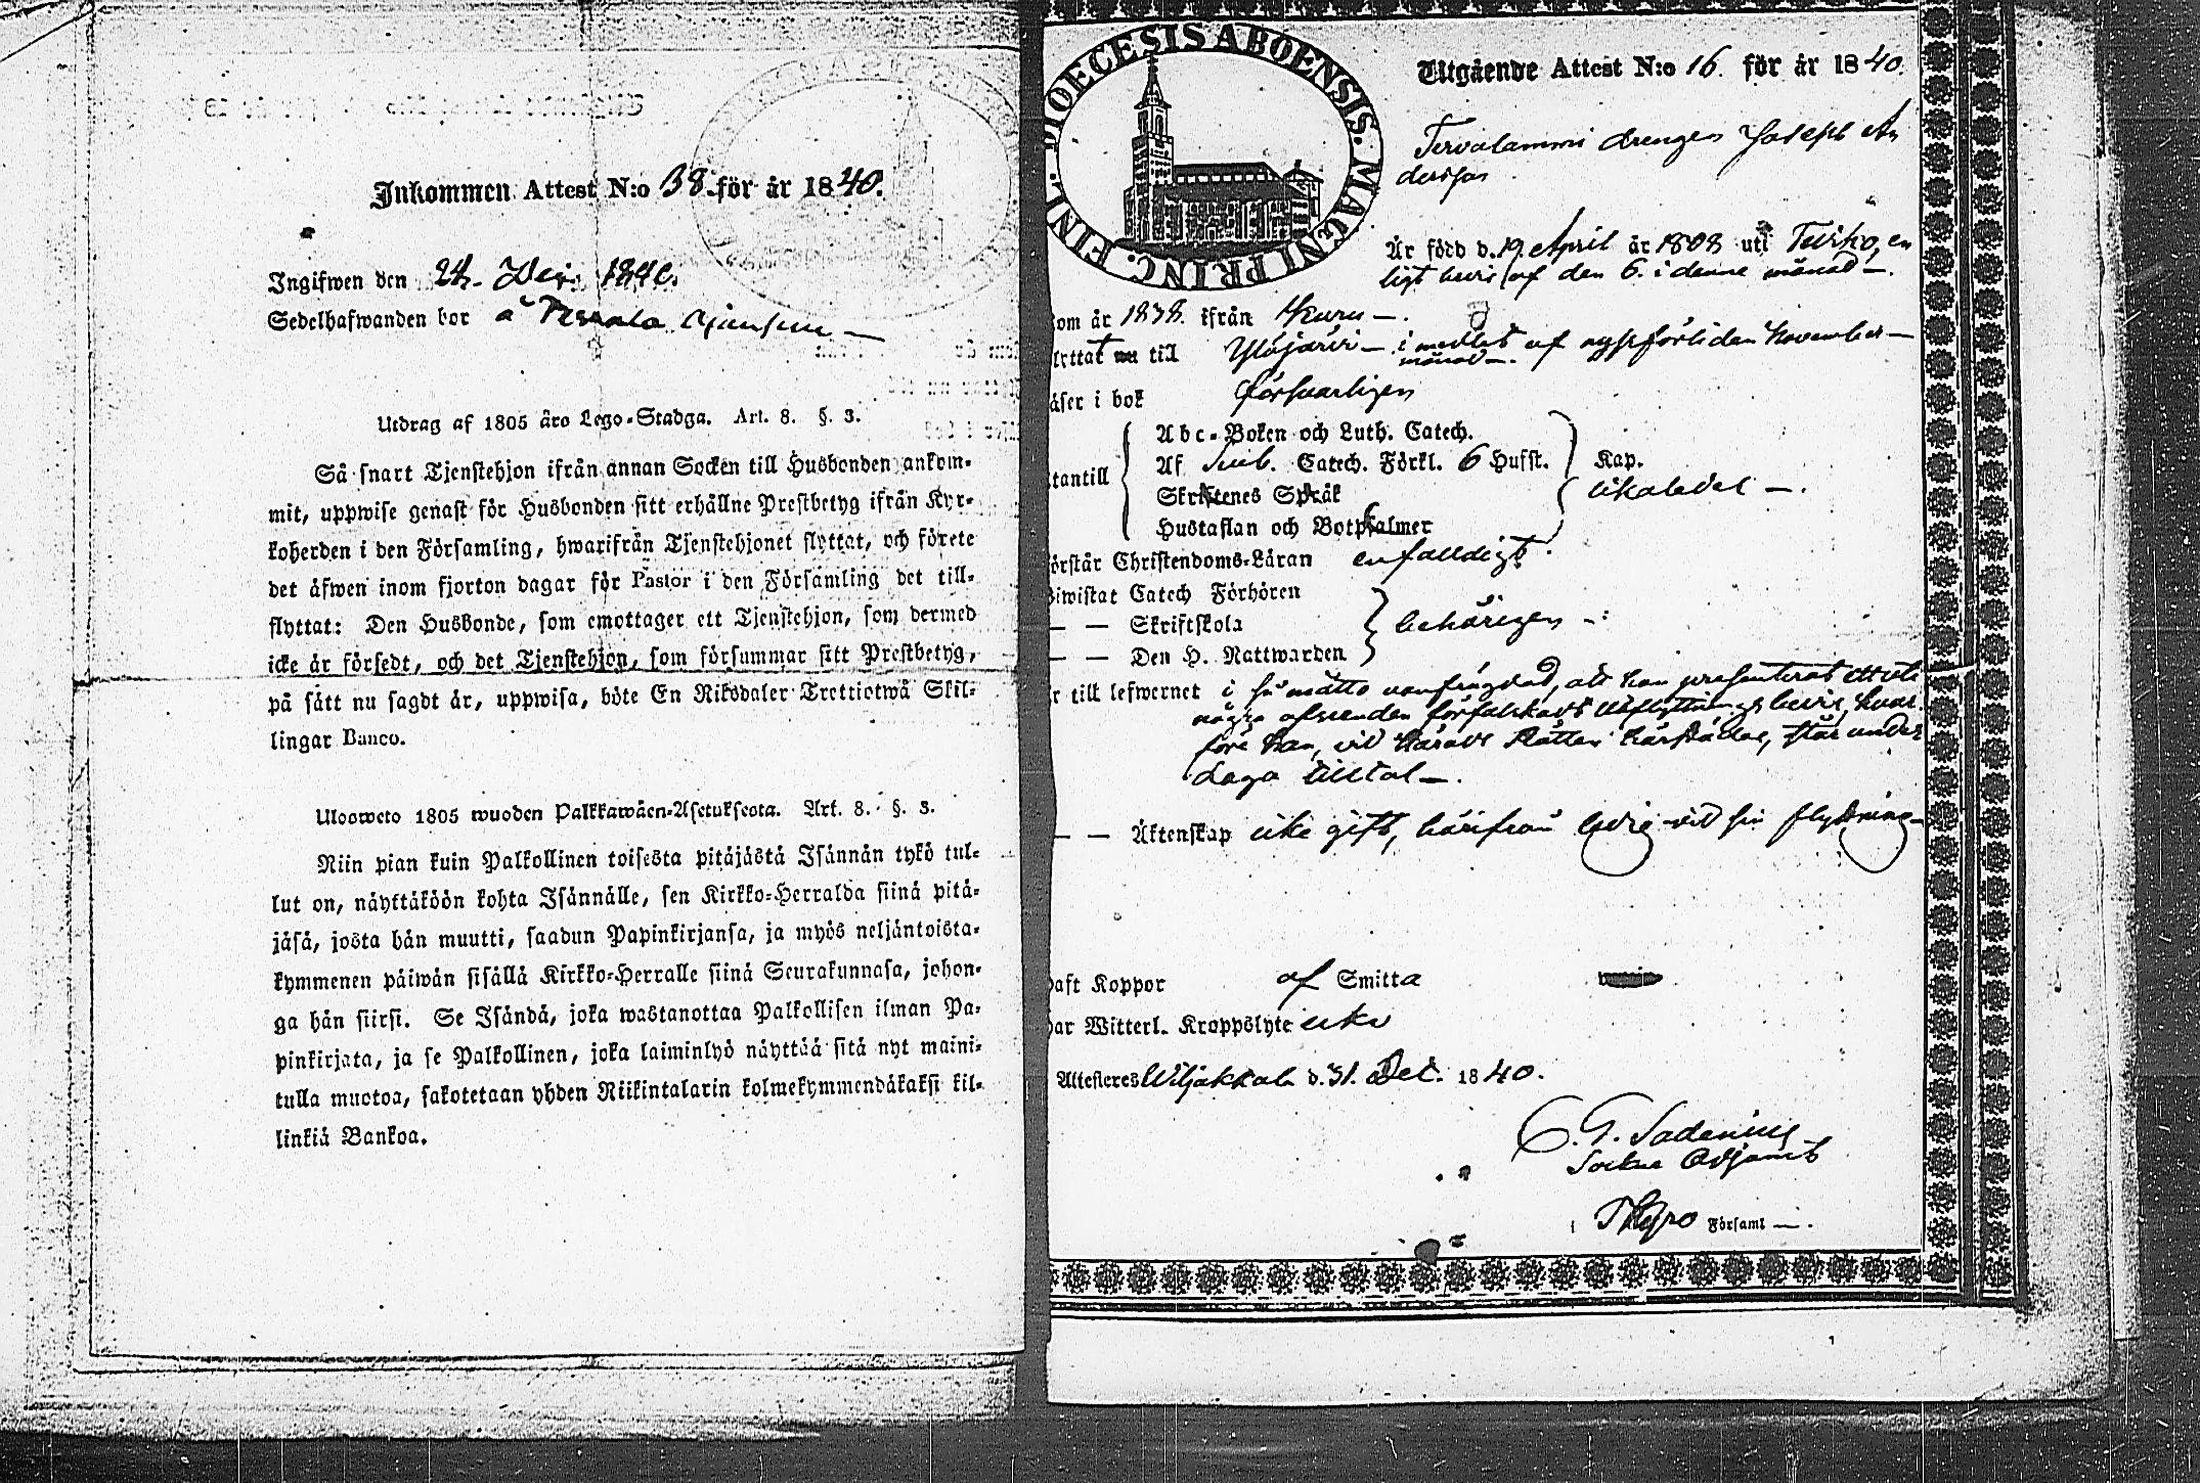 Inkommen Attest N:o 38. för år 1840.
Ingifwen den 24. 1840.
Sedelhafwanden bor å
Utdrag af 1805 års Lego-Stadga. Art. 8. §. 3.
Så snart Tjenstehjon ifrån annan Socken till Husbonden ankom-
mit, uppwise genast för Husbonden sitt erhållne Prestbetyg ifrån Kyr-
koherden i den Församling, hwarifrån Tjenstehjonet flyttat, och förete
det äfwen inom fjorton dagar för Pastor i den Församling det till-
flyttat: Den Husbonde, som emottager ett Tjenstehjon, som dermed
icke är försedt, och det Tjenstehjon, som försummar sitt Prestbetyg,
på sätt nu sagdt är, uppwisa, böte En Riksdaler Trettiotwå Skil-
lingar Banco.
Ulosweto 1805 wuoden Palkkawäen-Asetuksesta. Art. 8. §. 3.
Niin pian kuin Palkollinen toisesta pitäjästä Isännän tykö tul-
lut on, näyttäköön kohta Isännälle, sen Kirkko-Herralda siinä pitä-
jäsä, josta hän muutti, saadun Papinkirjansa, ja myös neljäntoista-
kymmenen päiwän sisällä Kirkko-Herralle siinä Seurakunnasa, johon-
ga hän siirsi. Se Isändä, joka wastanottaa Palkollisen ilman Pa-
pinkirjata, ja se Palkollinen, joka laiminlyö näyttää sitä nyt maini-
tulla muotoa, sakotetaan yhden Riikintalarin kolmekymmendäkaksi kil-
linkiä Bankoa.
DIOECESIS ABOENSIS. MAGNI PRINC. FINL.
Utgående Attest N:o 16. för år 1840.
Tervalammi drengen Joseph An
dersson
Är född d. 19. April år 1808 uti en
ligt bevis af den 6. i denne månad –.
om år 1838. ifrån Kuru –.
lyttat nu till Ylöjärvi – i medlet af nystförliden November –
månad –.
äser i bok försvarligen
tantill
Abc-Boken och Luth. Catech.
Af Sueb. Catech. Förkl. 6 Hufst. Kap.
Skriftenes Språk likaledes –.
Hustaflan och Botpsalmer
örstår Christendoms-Läran enfalldigt.
iwistat Catech Förhören
— — Skriftskola behörigen –:
— — Den H. Nattwarden
r till lefwernet i så måtto vanfrägdad, att han presenterat ett uti
några afseenden förfalskadt utflyttnings bevis, hvar
före han, vid Härads Rätten härstädes, står under
Laga tilltal –.
— — Äktenskap icke gift, härifrån ledig vid sin flyttning –
aft Koppor af Smitta
ar Witterl. Kroppslyte icke
Attesteres Wiljakkala d. 31. Dec. 1840.
C. G. Sadenius
Sockne Adjunct
i Församl –.